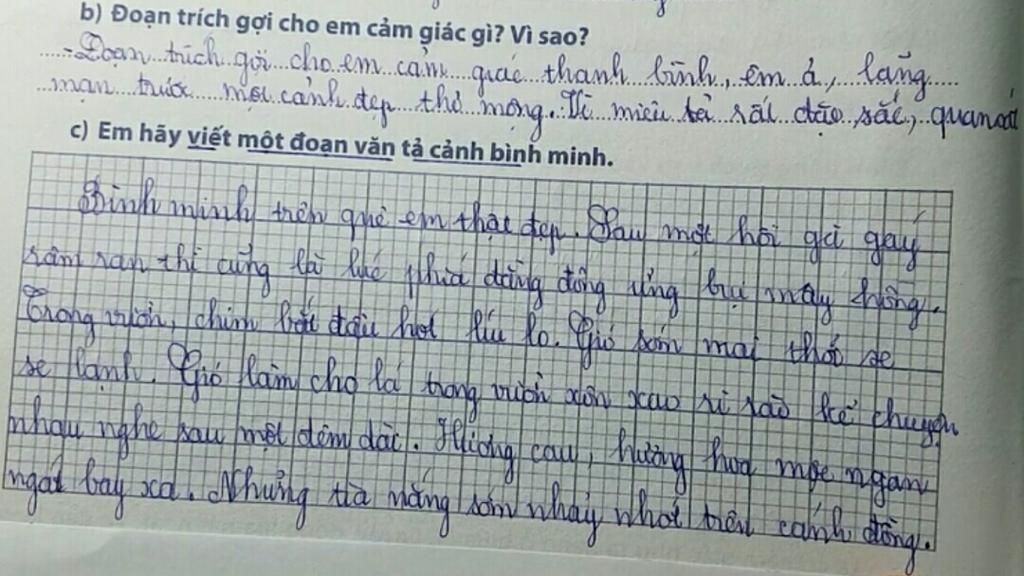 b) Đoạn trích gợi cho em cảm giác gì? Vì sao?
- Đoạn trích gợi cho em cảm giác thanh bình, êm ả, lãng
mạn trước một cảnh đẹp thơ mộng. Vì miêu tả rất đặc sắc, quan sát
c) Em hãy viết một đoạn văn tả cảnh bình minh.
Bình minh trên quê em thật đẹp. Sau một hồi gà gáy
râm ran thì cũng là lúc phía đằng đông ửng bụi mây hồng.
Trong vườn, chim bắt đầu hót líu lo. Gió sớm mai thổi se
se lạnh. Gió làm cho lá trong vườn xôn xao rì rào kể chuyện
nhau nghe sau một đêm dài. Hương cau, hương hoa mộc ngan
ngát bay xa. Những tia nắng sớm nhảy nhót trên cánh đồng.